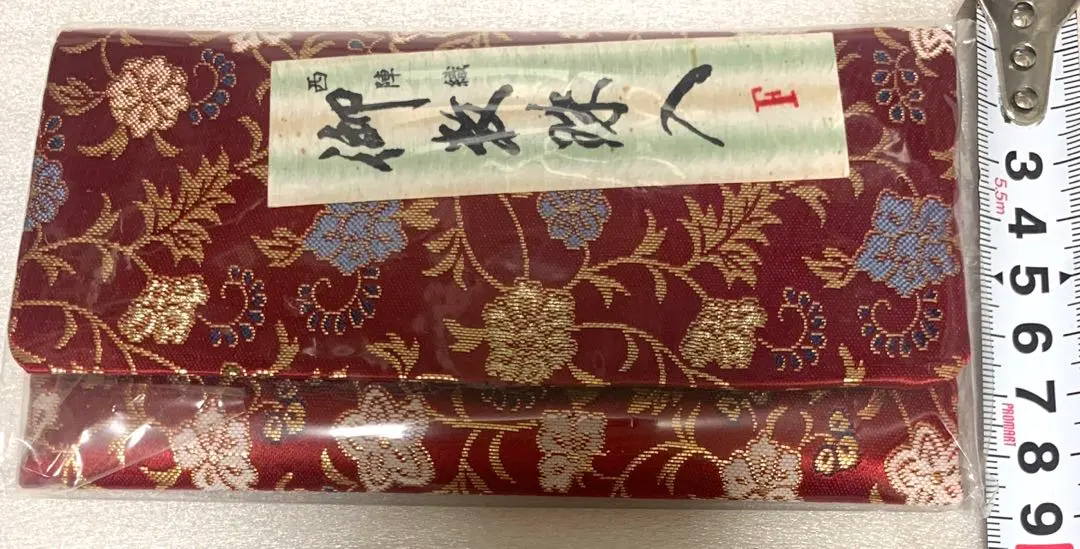 西陣織
御数珠入
F
3
5.5m
4
5
6
7
PROMART
8
9